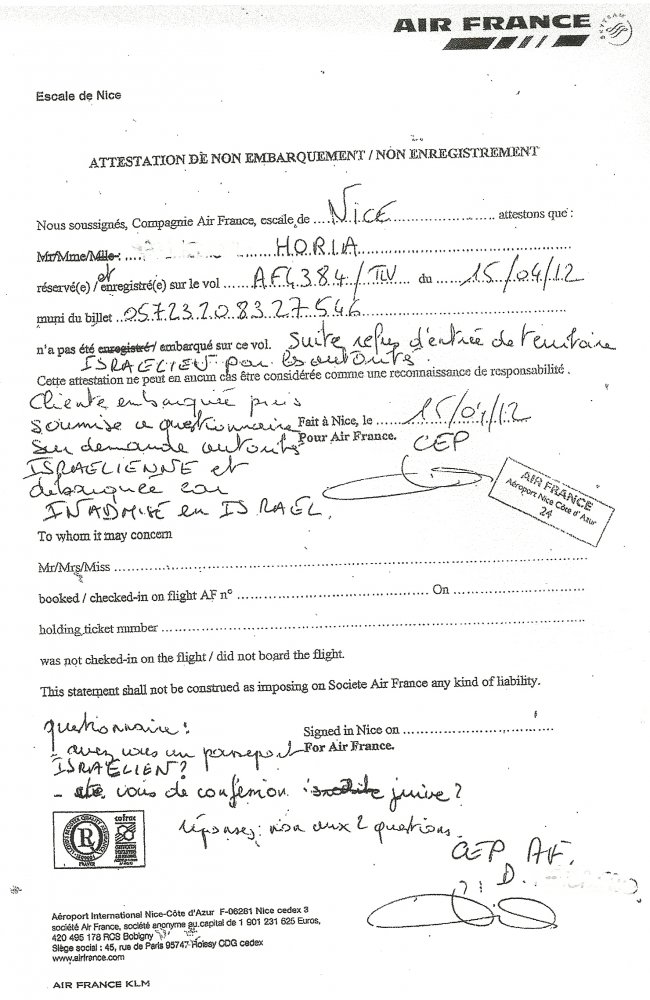 AIR FRANCE
SKYTEAM
Escale de Nice
ATTESTATION DE NON EMBARQUEMENT / NON ENREGISTREMENT
Nous soussignés, Compagnie Air France, escale de .... NICE .... attestons que :
Mr/Mme/Mlle : .... HORIA ....
réservé(e) / et enregistré(e) sur le vol .... AF4384/TLV .... du .... 15/04/12
muni du billet .. 05723208327546 ....
n'a pas été enregistré / embarqué sur ce vol. Suite refus d'entrée de territoire
ISRAELIEN par les autorités.
Cette attestation ne peut en aucun cas être considérée comme une reconnaissance de responsabilité .
Cliente embarquée puis
soumise a questionnaire Fait à Nice, le .... 15/04/12
sur demande autorités Pour Air France. CEP
ISRAELIENNE et
debarquée car
INADMISE en ISRAEL.
AIR FRANCE
Aéroport Nice Côte d'Azur
24
To whom it may concern
Mr/Mrs/Miss ....
booked / checked-in on flight AF n° .... On ....
holding ticket number ....
was not cheked-in on the flight / did not board the flight.
This statement shall not be construed as imposing on Societe Air France any kind of liability.
questionnaire : Signed in Nice on ....
- avez vous un passeport For Air France.
ISRAELIEN ?
- etes vous de confession juive ?
réponses : non aux 2 questions.
CEP AF.
D.
cofrac
FRANCE
Aéroport International Nice-Côte d'Azur F-06281 Nice cedex 3
société Air France, société anonyme au capital de 1 901 231 625 Euros,
420 495 178 RCS Bobigny
Siège social : 45, rue de Paris 95747 Roissy CDG cedex
www.airfrance.com
AIR FRANCE KLM